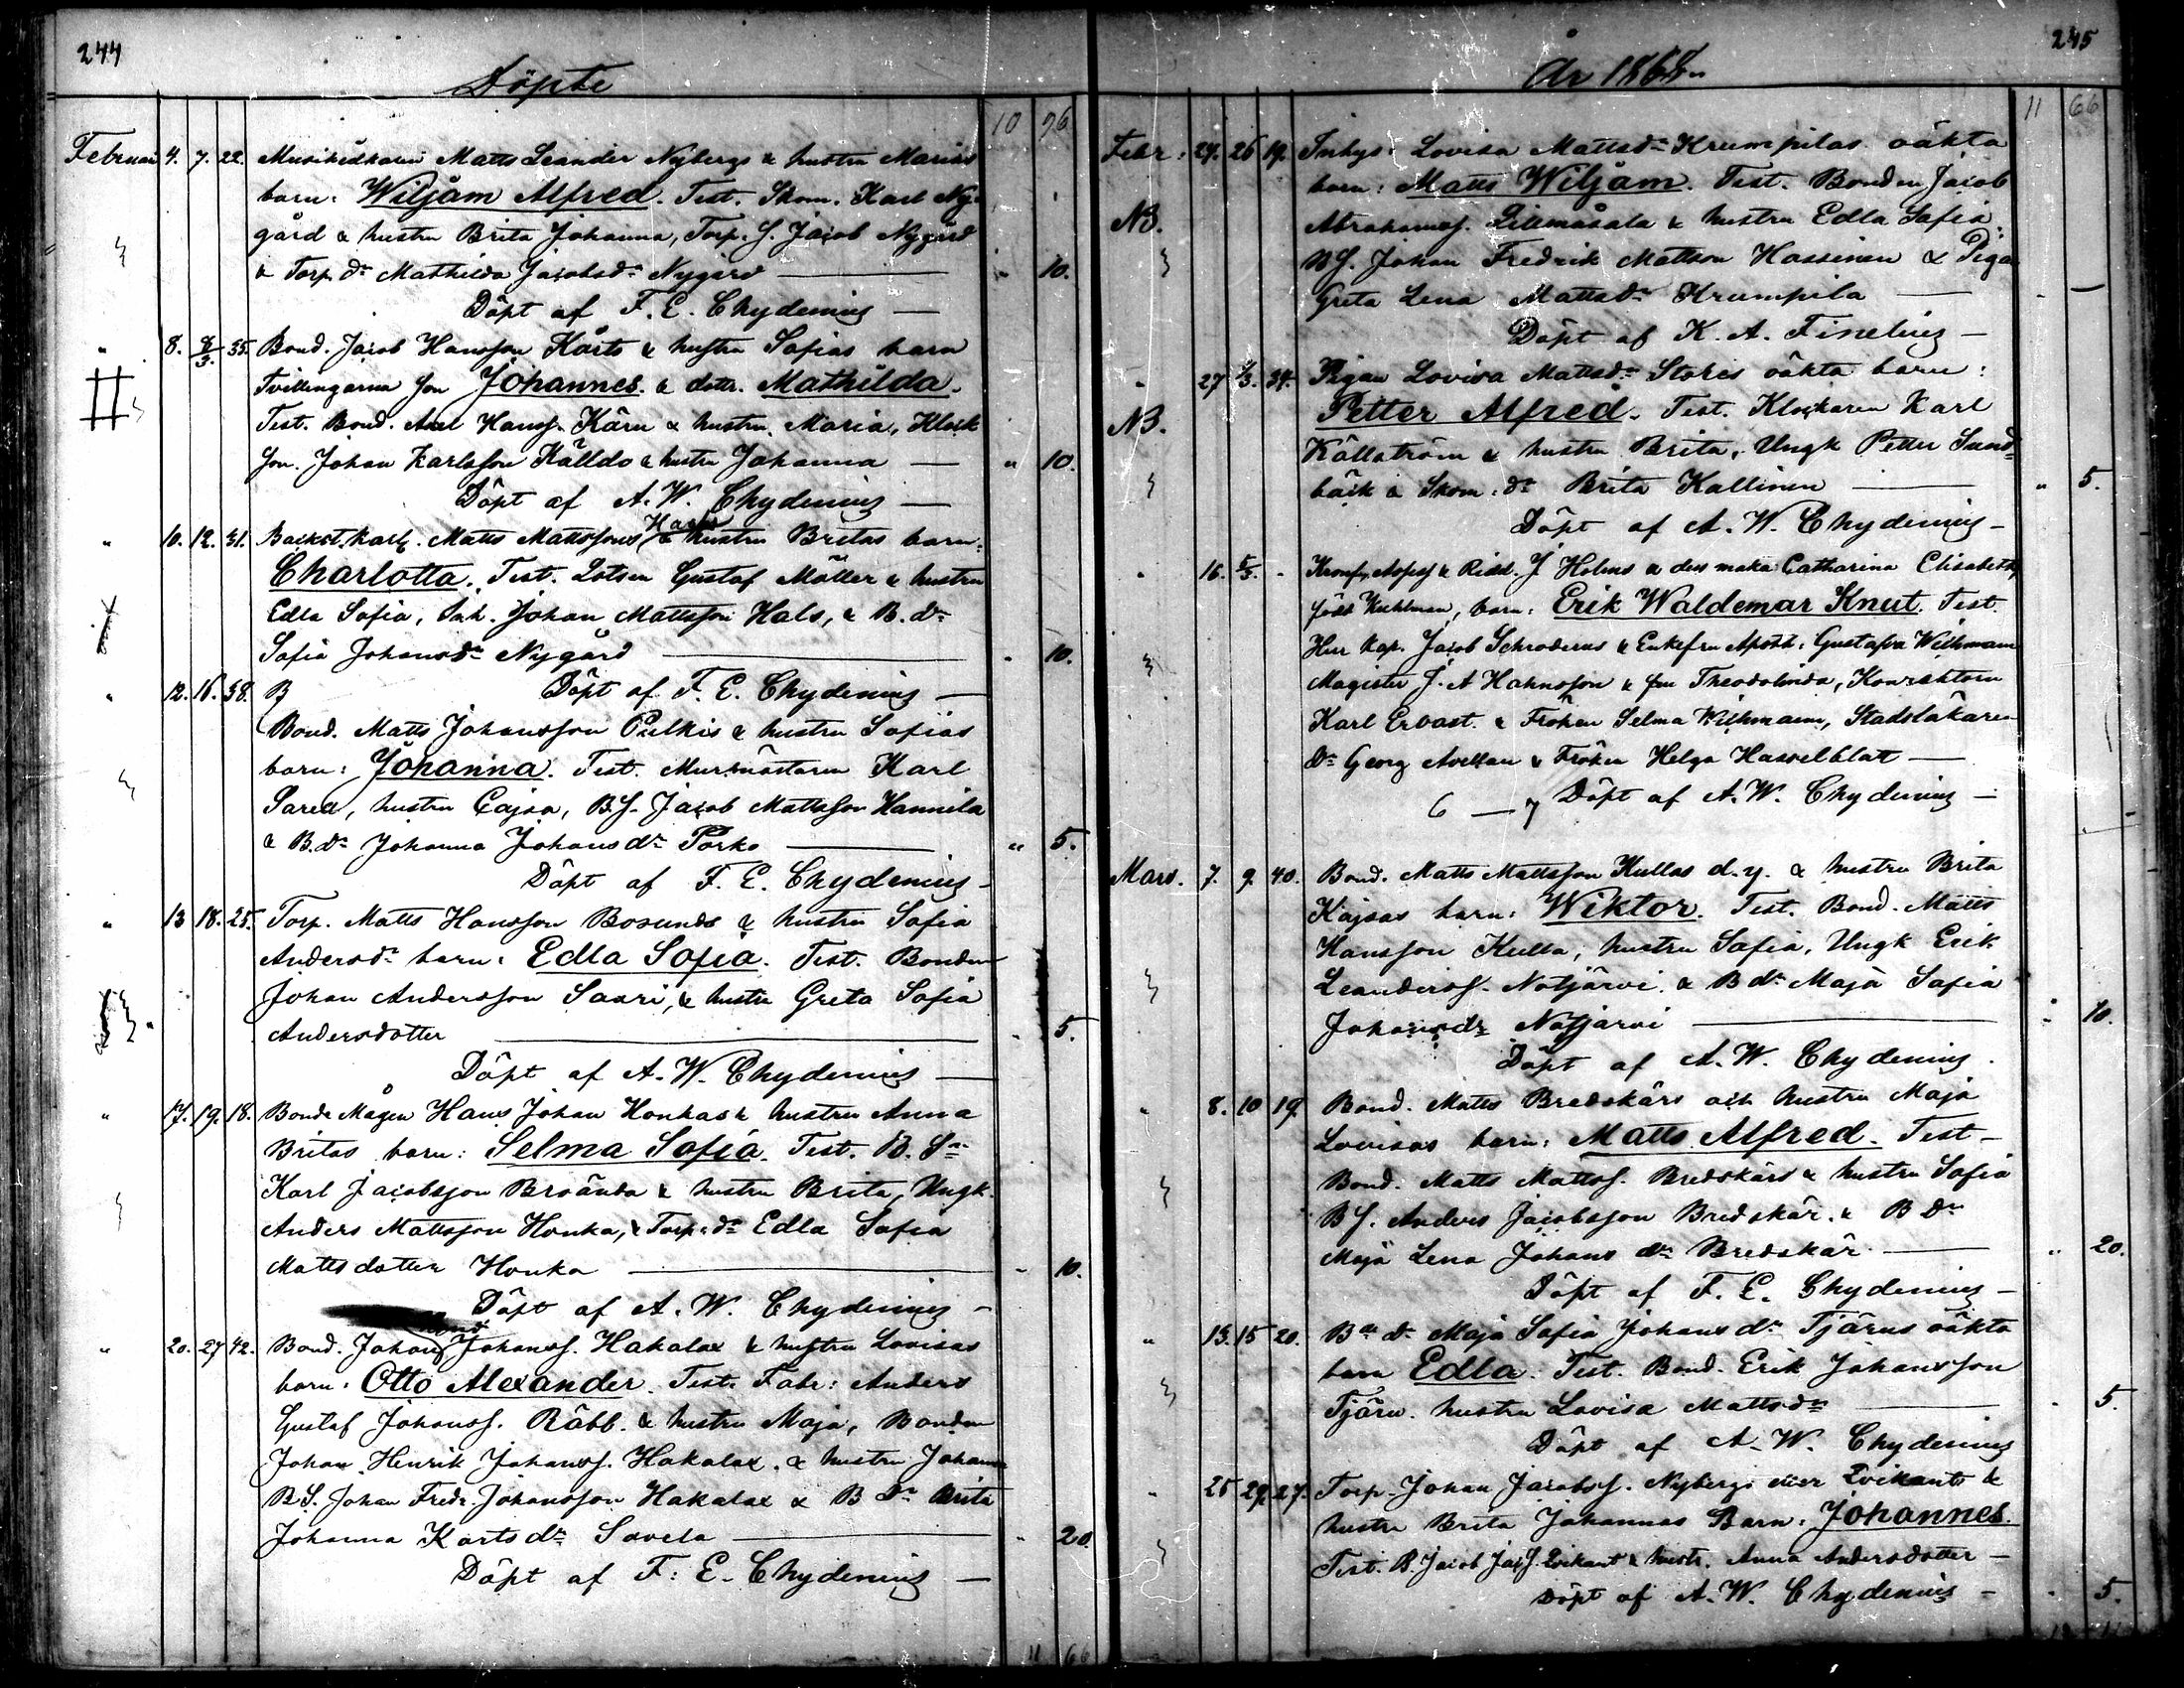 244
Döpte
10 96
Februari 4. 7. 22. Musikidkaren Matts Leander Nybergs & hustru Marias
barn: Wiljam Alfred. Test. Skom. Karl Ny-
gård & hustru Brita Johanna, Torp. S. Jacob Nygård
& Torp. dr Mathilda Jacobsdr Nygård — " 10.
Döpt af F. E. Chydenius —
" 8. 8/3. 35. Bond. Jacob Hansson Kårts & hustru Sofias barn
Tvillingarna son Johannes & dottr. Mathilda.
Test. Bond. Axel Hanss. Kärn & hustru Maria, Klock
son. Johan Karlsson Källdo & hustru Johanna — " 10.
Döpt af A. W. Chydenius —
" 10. 12. 31. Backst. karl. Matts Mattssons Hals & hustru Britas barn:
Charlotta. Test. Lotsen Gustaf Möller & hustru
Edla Sofia, Inh. Johan Mattsson Hals, & B. dr
Sofia Johansdr Nygård — " 10.
" 12. 16. 38. B Döpt af F. E. Chydenius —
Bond. Matts Johansson Pulkis & hustru Sofias
barn: Johanna. Test. Murmästaren Karl
Sared, hustru Cajsa, B.S. Jacob Mattsson Hannila
& B. dr Johanna Johansdr Porko — " 5.
Döpt af F. E. Chydenius —
" 13 18. 25. Torp. Matts Hansson Bosunds & hustru Sofia
Andersdr barn: Edla Sofia. Test. Bonden
Johan Andersson Saari, & hustru Greta Sofia
Andersdotter — " 5.
Döpt af A. W. Chydenius —
" 17. 19. 18. Bonde Mågen Hans Johan Honkas & hustru Anna
Britas barn: Selma Sofia. Test. B. Sn
Karl Jacobsson Broända & hustru Brita, Ungk.
Anders Mattsson Honka, & Torp. dr Edla Sofia
Mattsdotter Honka — " 10.
Döpt af A. W. Chydenius —
" 20. 27 42. Bond. Johan Johanss. Hakalax & hustru Lovisas
barn: Otto Alexander. Test. Fabr: Anders
Gustaf Johanss. Räbb. & hustru Maja, Bonden
Johan Henrik Johanss. Hakalax. & hustru Johanna
B.S. Johan Fredr. Johansson Hakalax & B Dr Brita
Johanna Karlsdr Savela — " 20.
Döpt af F. E. Chydenius —
11 66
245
År 1868
11 66
Febr: 24. 26 19. Inhys: Lovisa Mattsdr Krumpilas oäkta
barn: Matts Wiljam. Test. Bonden Jacob
NB. Abrahams. Lillmåsala & hustru Edla Sofia,
B.S. Johan Fredrik Mattson Hassinen & Pigan
Greta Lena Mattsdr Krumpila — " —
Döpt af K. A. Finelius —
" 27 1/3. 34. Pigan Lovisa Mattsdr Stores oäkta barn:
NB. Petter Alfred. Test. Klockaren Karl
Källström & hustru Brita, Ungk Petter Sand-
bäck & Skom: dr Brita Kallinen — " 5.
Döpt af A. W. Chydenius —
" 16. 5/3. - J Holms & dess maka Catharina Elisabeth,
född barn: Erik Waldemar Knut. Test.
Herr Kap. Jacob Schroderus & Enkefru Apoth: Gustafva Wichmann
Magister J. A Hahnsson & fru Theodolinda, Konrektorn
Karl Ervast & Fröken Selma Wichmann, Stadsläkaren
Dr Georg Avellan & Fröken Helga Hasselblat —
6 — 7 Döpt af A. W. Chydenius —
Mars. 7. 9. 40. Bond. Matts Mattsson Kullas d.y. & hustru Brita
Kajsas barn: Wiktor. Test. Bond. Matts
Hansson Kulla, hustru Sofia, Ungk Erik
Leanderss. Notjärvi & B dr Maja Sofia
Johansdr Notjärvi — " 10.
Döpt af A. W. Chydenius.
" 8. 10 19 Bond. Matts Bredskärs och hustru Maja
Lovisas barn: Matts Alfred. Test —
Bond. Matts Mattss. Bredskärs & hustru Sofia
B.S. Anders Jacobsson Bredskär. & B Dr
Maja Lena Johans dr Bredskär — " 20.
Döpt af F. E. Chydenius —
" 13. 15 20. Bn dr Maja Sofia Johans dr Tjärns oäkta
barn Edla. Test. Bond. Erik Johansson
Tjärn. hustru Lovisa Mattsdr — " 5.
Döpt af A. W. Chydenius
" 25 29. 27. Torp. Johan Jacobss. Nybergs eller Evikants &
hustru Brita Johannas Barn: Johannes.
Test. B. Jacob Jacs. Evikant & hustr. Anna Andersdotter —
Döpt af A. W. Chydenius — " 5.